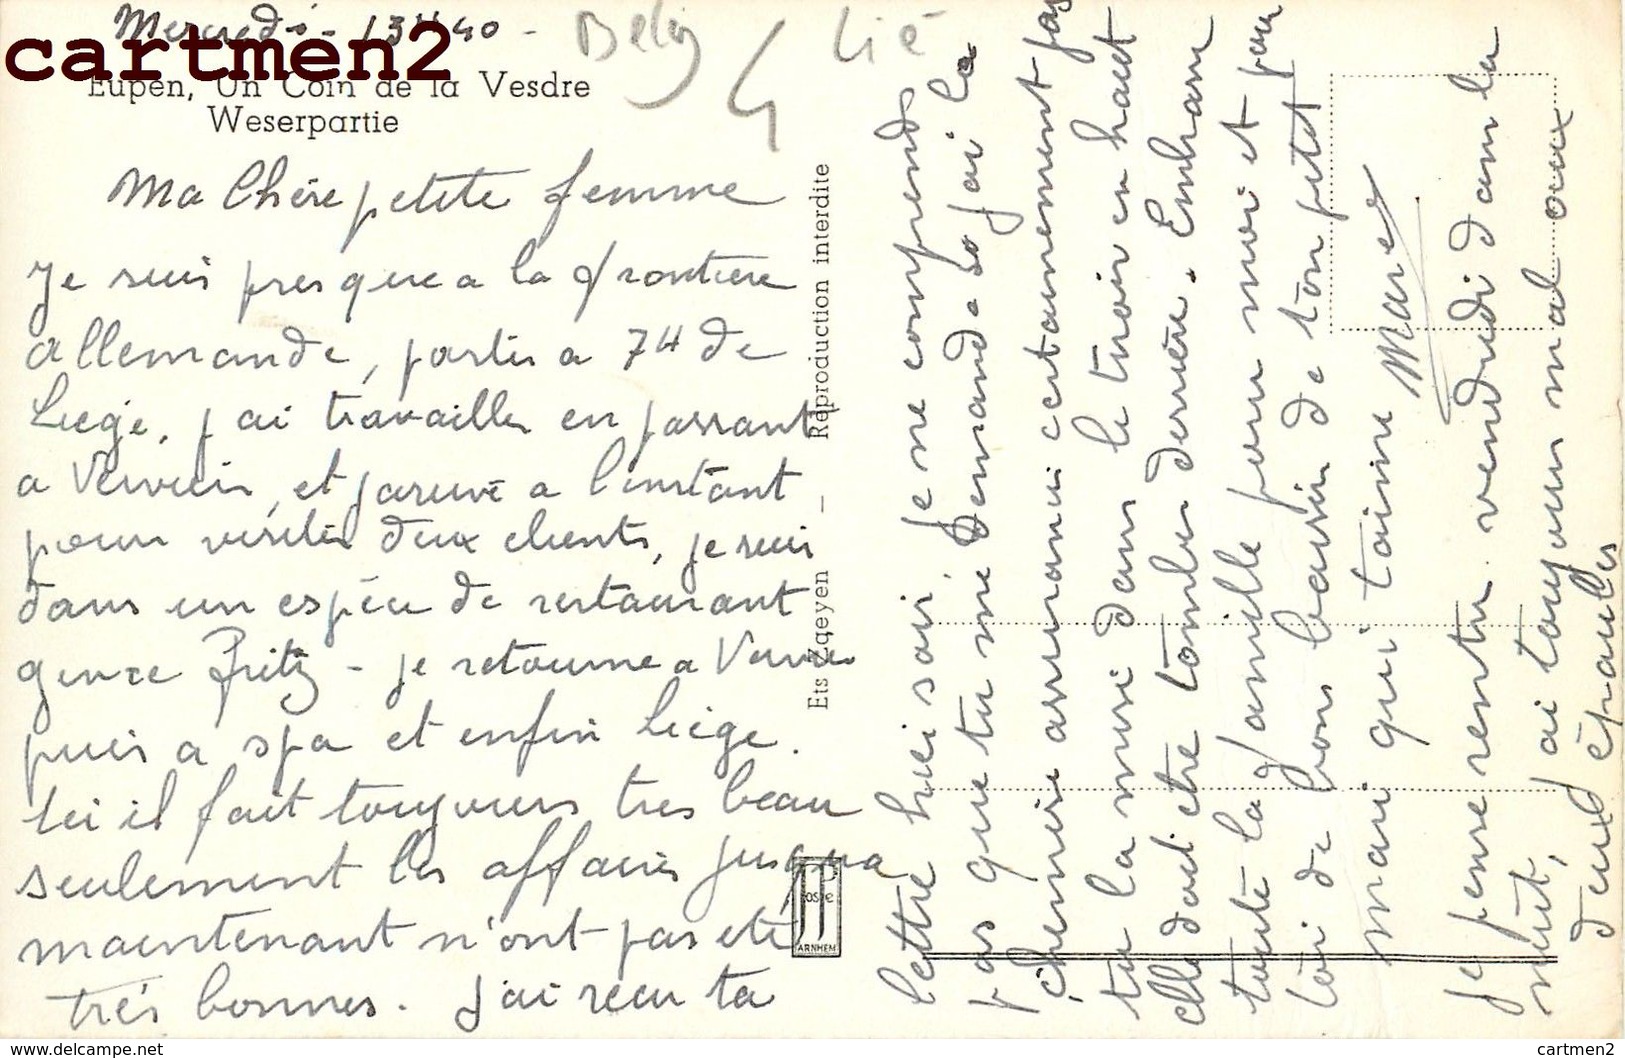 Mercredi - 13H40 -
Belg
Liè
4
cartmen2
Eupen, Un Coin de la Vesdre
Weserpartie
Ma Chère petite femme
Je suis presque a la frontiere
allemande, partis a 7H de
Liège, j'ai travailler en passant
a Verviers, et j'arrive a l'instant
pour visiter deux clients, je suis
dans un espéce de restaurant
genre Fritz - je retourne a Verviers
puis a spa et enfin Liège.
Ici il fait toujours tres beau
seulement les affaires jusqua
maintenant n'ont pas eté
trés bonnes. J'ai recu ta
Ets Zaeyen — Reproduction interdite
JOSPE
ARNHEM
lettre hier soir, je ne comprends
pas que tu me demande so j'ai la
chemise car
tu la mise dans le tiroir en haut
elle doit etre tomber derrière. Embrasse
toute la famille pour moi et pour
toi de bons baisers de ton petit
mari qui t'aime Marc
Je pense rentrer vendredi dans la
nuit, j'ai toujours mal aux
deux épaules
cartmen2
https://www.delcampe.net